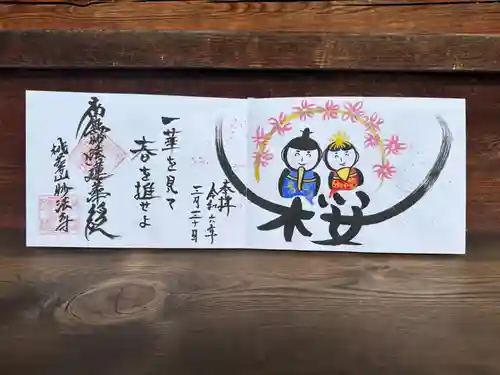 桜
奉拝
令和六年
二月二十日
一華を見て
春を推せよ
南無妙法蓮華経
妙法寺